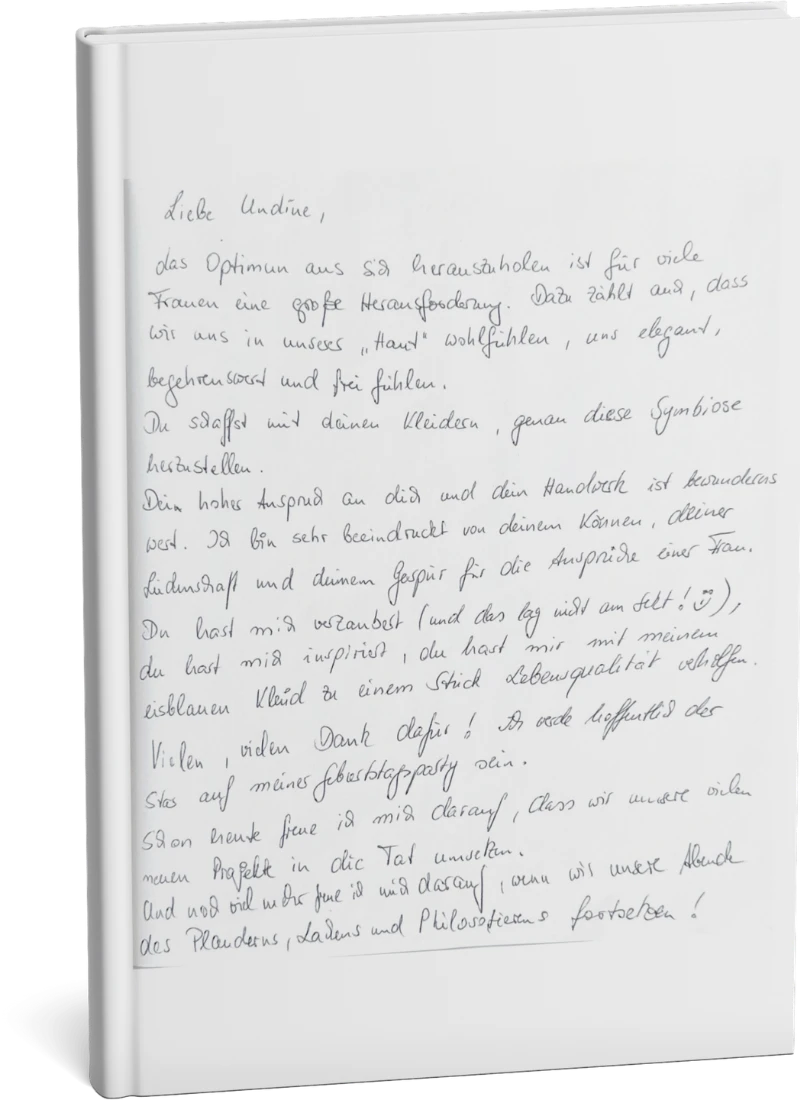 Liebe Undine,
das Optimun aus sich herauszuholen ist für viele
Frauen eine große Herausforderung. Dazu zählt auch, dass
wir uns in unserer „Haut“ wohlfühlen, uns elegant,
begehrenswert und frei fühlen.
Du schaffst mit deinen Kleidern, genau diese Symbiose
herzustellen.
Dein hoher Anspruch an dich und dein Handwerk ist bewunderns
wert. Ich bin sehr beeindruckt von deinem Können, deiner
Leidenschaft und deinem Gespür für die Ansprüche einer Frau.
Du hast mich verzaubert (und das lag nicht am Sekt! ☺),
du hast mich inspiriert, du hast mir mit meinem
eisblauen Kleid zu einem Stück Lebensqualität verholfen.
Vielen, vielen Dank dafür! Ich werde hoffentlich der
Star auf meiner Geburtstagsparty sein.
Schon heute freue ich mich darauf, dass wir unsere vielen
neuen Projekte in die Tat umsetzen.
Und noch viel mehr freue ich mich darauf, wenn wir unsere Abende
des Plauderns, Lachens und Philosofierens fortsetzen!